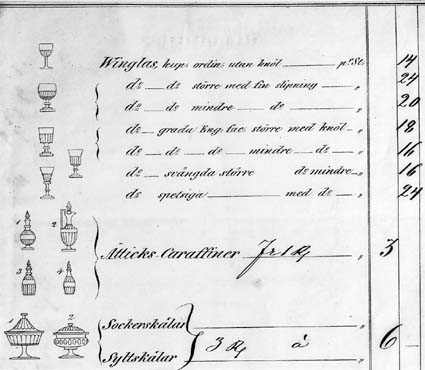 Winglas, kup. ordin: utan knöl — pr St. 14
do — do större med fin slipning — „ 24
do — do mindre — do — „ 20
do — grada Eng. fac: större med knöl — „ 18
do — do — do — mindre — do — „ 16
do — svängda större do mindre — „ 16
do spetsiga — med do — „ 24
1 2
Ätticks-Caraffiner „ 3
3 4
1 2
Sockerskålar
3 à „ 6 —
Syltskålar „